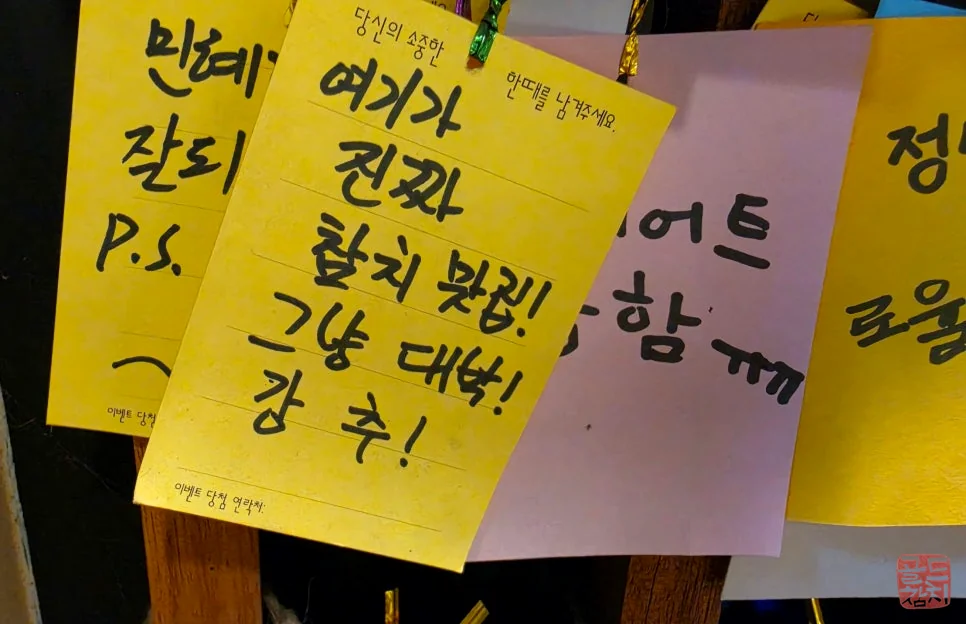 당신의 소중한
한때를 남겨주세요.
여기가
진짜
참치 맛집!
그냥 대박!
강 추!
이벤트 당첨 연락처:
민혜
잘되
P.S.
이벤트 당첨
어트
함 ㅠㅠ
정
로울